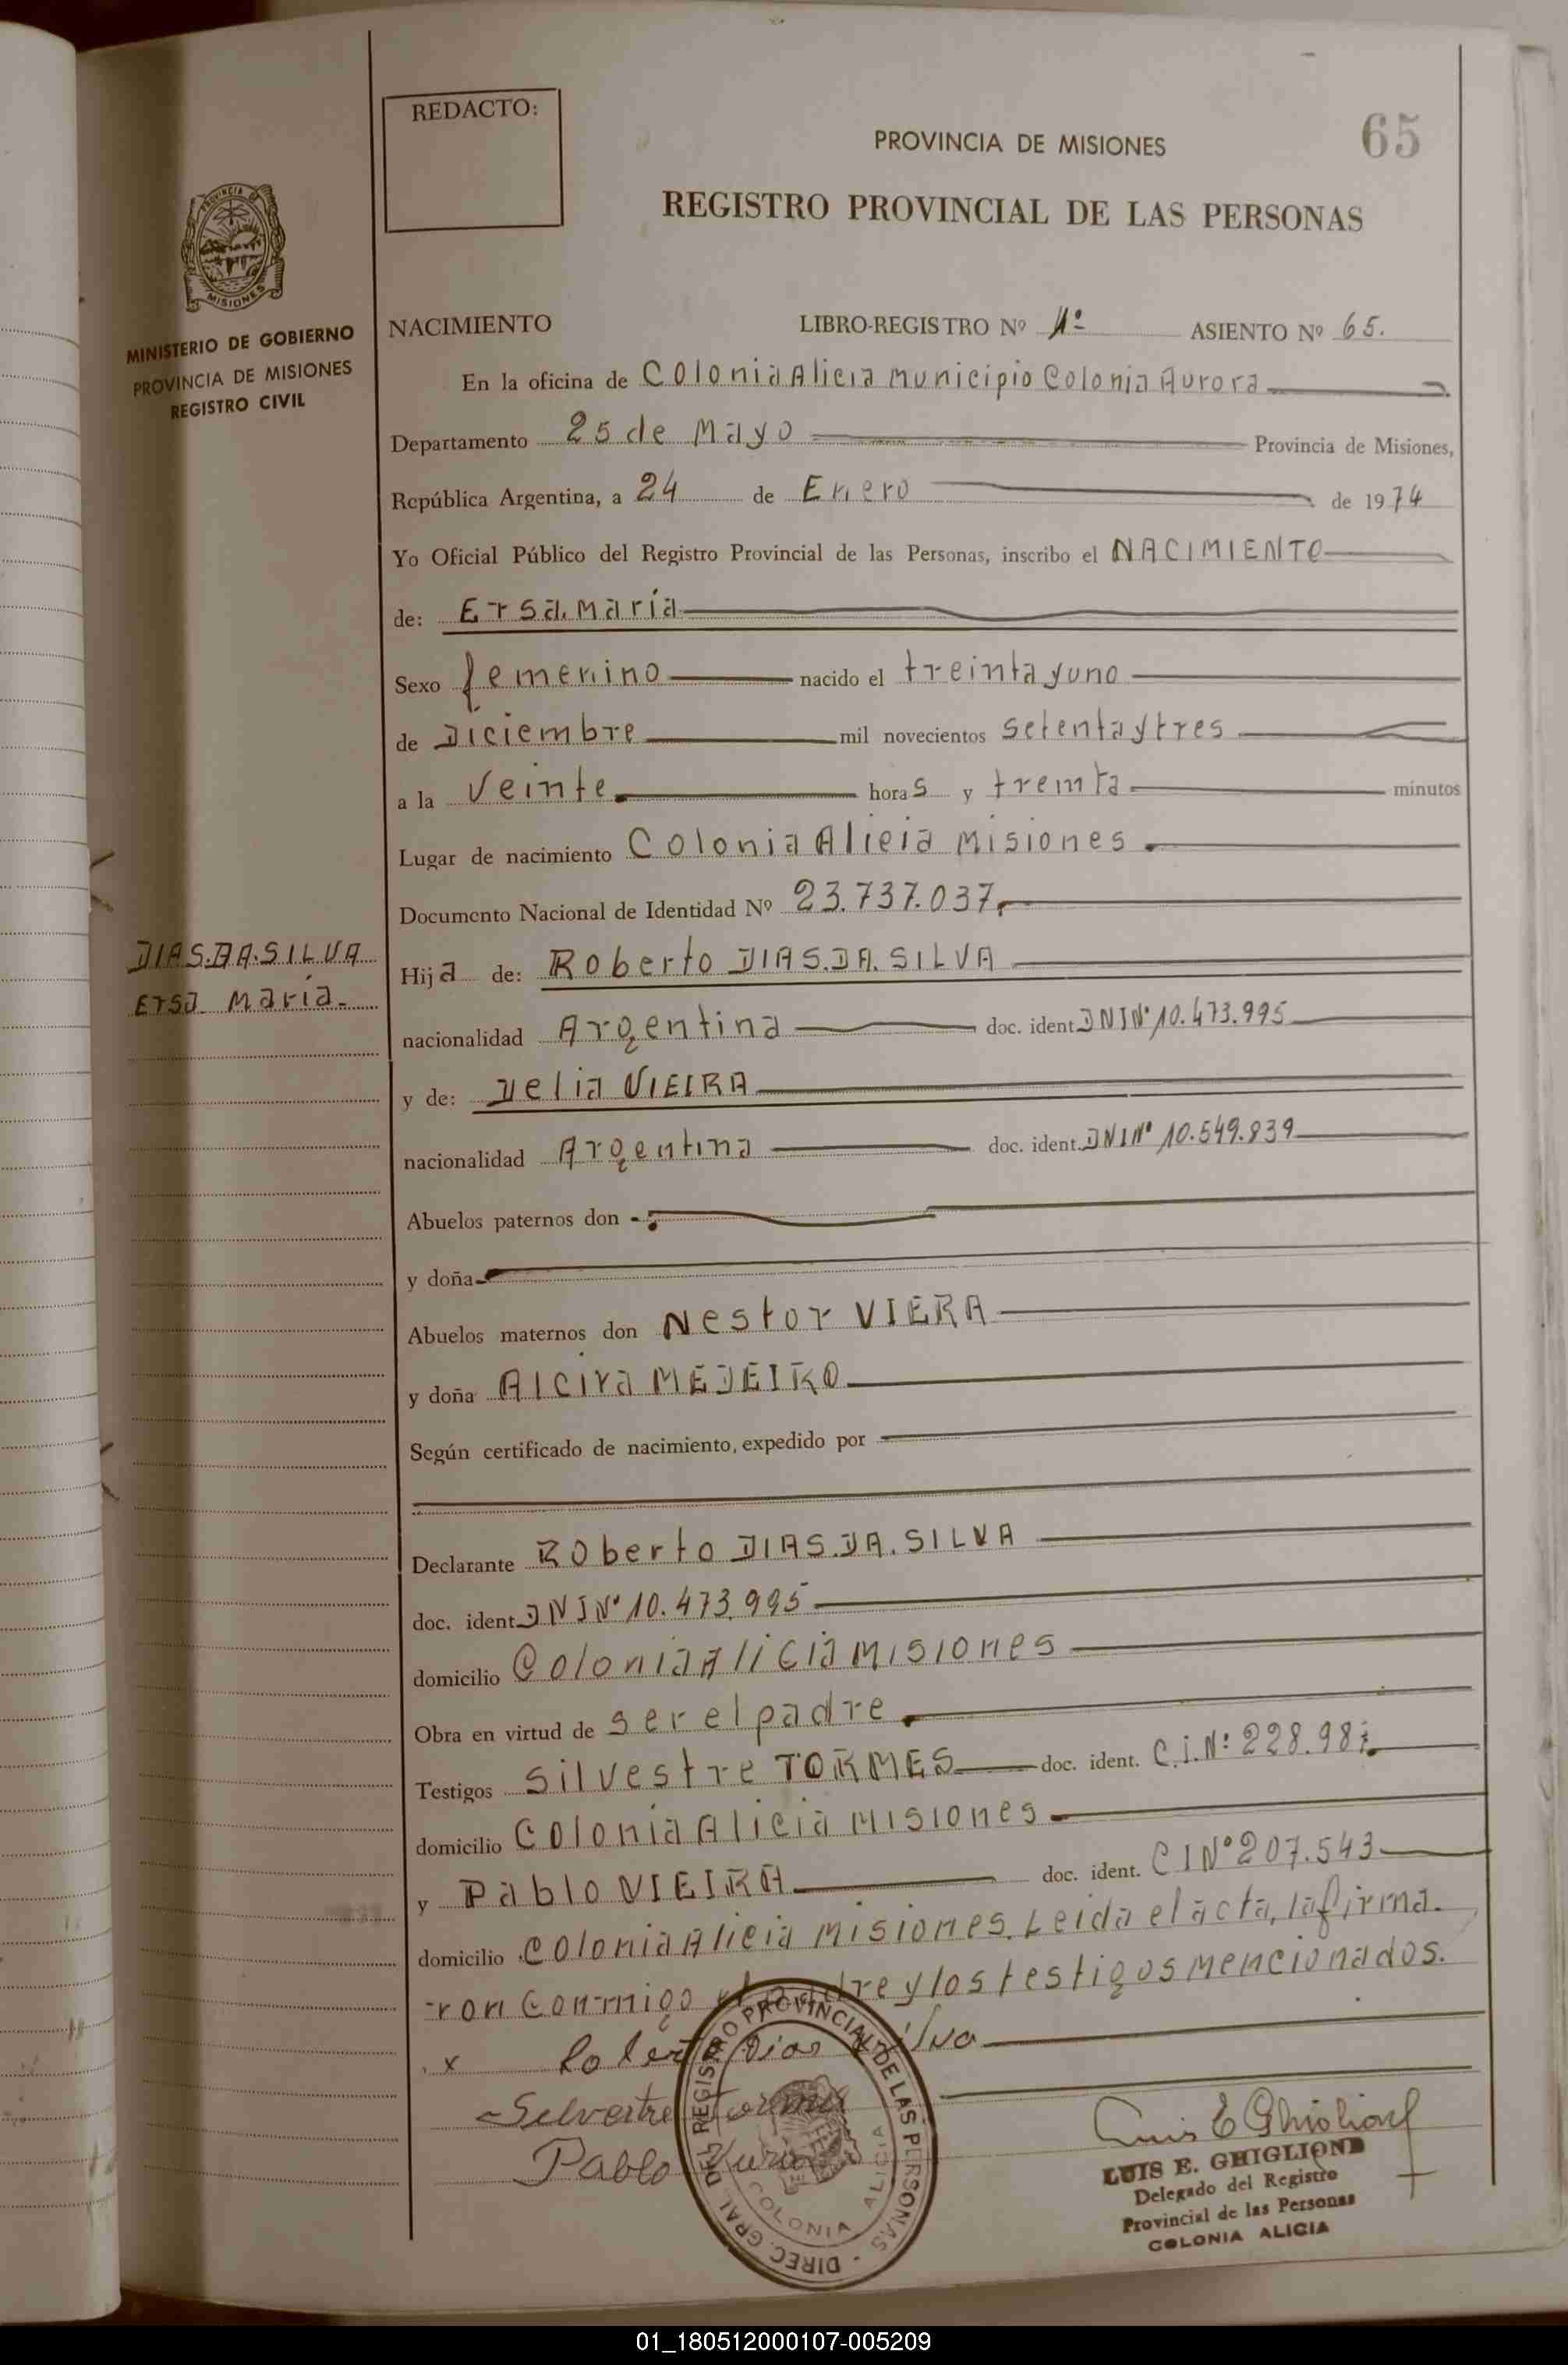 REDACTO:
65
PROVINCIA DE MISIONES
REGISTRO PROVINCIAL DE LAS PERSONAS
PROVINCIA DE
MISIONES
MINISTERIO DE GOBIERNO
PROVINCIA DE MISIONES
REGISTRO CIVIL
NACIMIENTO LIBRO-REGISTRO Nº 1º ASIENTO Nº 65.
En la oficina de Colonia Alicia Municipio Colonia Aurora
Departamento 25 de Mayo Provincia de Misiones,
República Argentina, a 24 de Enero de 1974
Yo Oficial Público del Registro Provincial de las Personas, inscribo el NACIMIENTO
de: Ersa. María
Sexo femenino nacido el treinta y uno
de Diciembre mil novecientos setenta y tres
a la Veinte horas y treinta minutos
Lugar de nacimiento Colonia Alicia Misiones
Documento Nacional de Identidad Nº 23.737.037
DIAS.DA.SILVA
Ersa María
Hija de: Roberto DIAS.DA.SILVA
nacionalidad Argentina doc. ident. DNI Nº 10.473.995
y de: Delia VIEIRA
nacionalidad Argentina doc. ident. DNI Nº 10.549.839
Abuelos paternos don
y doña
Abuelos maternos don Nestor VIERA
y doña Alcira MEDEIRO
Según certificado de nacimiento, expedido por
Declarante Roberto DIAS.DA.SILVA
doc. ident. DNI Nº 10.473.995
domicilio Colonia Alicia Misiones
Obra en virtud de ser el padre
Testigos Silvestre TORMES doc. ident. C.I.Nº: 228.98
domicilio Colonia Alicia Misiones
y Pablo VIEIRA doc. ident. CI Nº 207.543
domicilio Colonia Alicia Misiones. Leida el acta, la firma-
ron conmigo el padre y los testigos mencionados.
x Roberto Dias Silva
Silvestre Tormes
Pablo
DIREC. GRAL. DEL REGISTRO PROVINCIAL DE LAS PERSONAS
COLONIA ALICIA
Luis E Ghiglione
LUIS E. GHIGLIONE
Delegado del Registro
Provincial de las Personas
COLONIA ALICIA
01_180512000107-005209